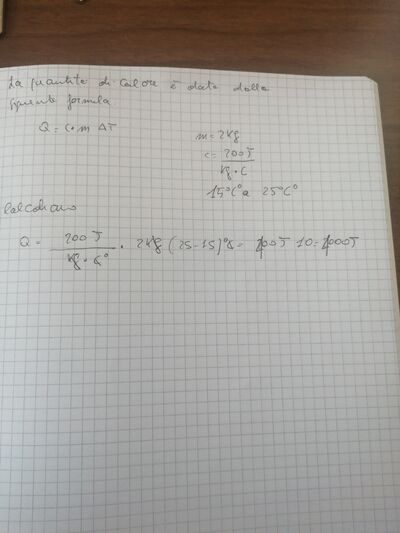 La quantità di calore è data dalla
seguente formula
Q = c·m ΔT
m = 2kg
c = 200J
kg·C
15°C° a 25°C°
Calcoliamo
Q = 200 J / kg·C° · 2kg (25-15)°C = 400J 10 = 4000J